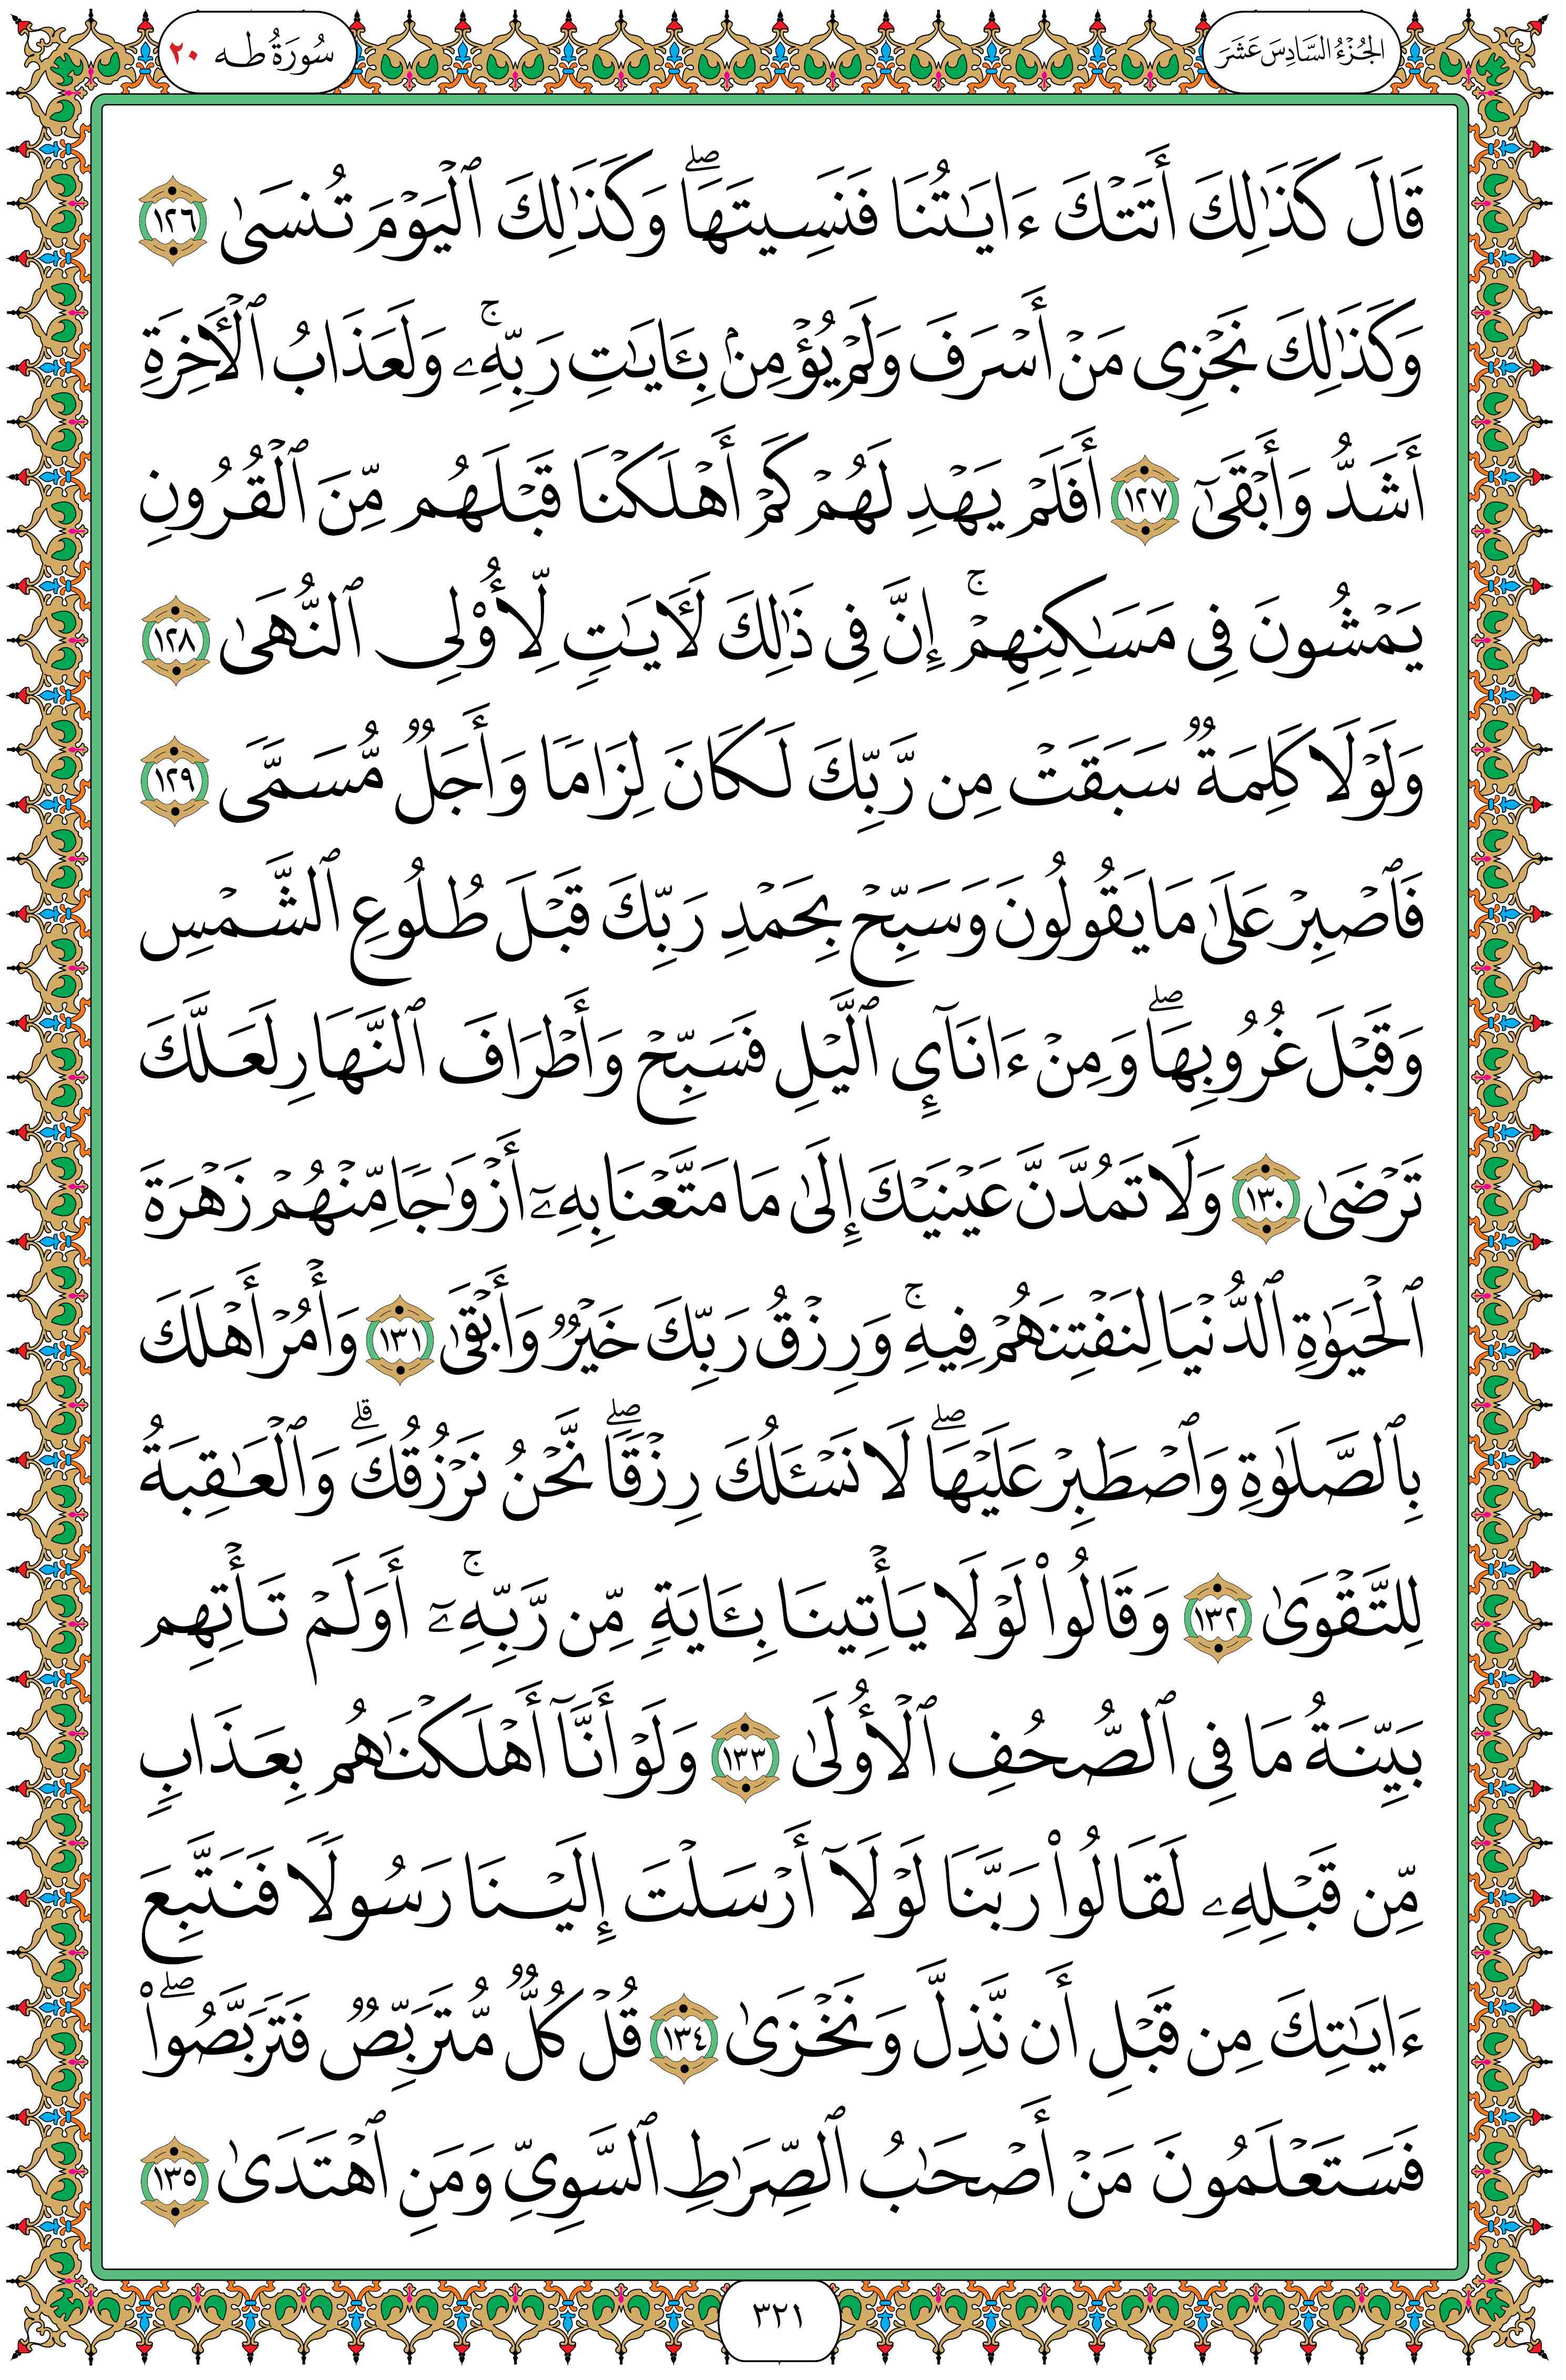 الجُزْءُ السَّادِسَ عَشَرَ
سُورَةُ طه ٢٠
قَالَ كَذَٰلِكَ أَتَتۡكَ ءَايَٰتُنَا فَنَسِيتَهَاۖ وَكَذَٰلِكَ ٱلۡيَوۡمَ تُنسَىٰ ١٢٦
وَكَذَٰلِكَ نَجۡزِي مَنۡ أَسۡرَفَ وَلَمۡ يُؤۡمِنۢ بِـَٔايَٰتِ رَبِّهِۦۚ وَلَعَذَابُ ٱلۡأٓخِرَةِ
أَشَدُّ وَأَبۡقَىٰٓ ١٢٧ أَفَلَمۡ يَهۡدِ لَهُمۡ كَمۡ أَهۡلَكۡنَا قَبۡلَهُم مِّنَ ٱلۡقُرُونِ
يَمۡشُونَ فِي مَسَٰكِنِهِمۡۚ إِنَّ فِي ذَٰلِكَ لَأٓيَٰتٖ لِّأُوْلِي ٱلنُّهَىٰ ١٢٨
وَلَوۡلَا كَلِمَةٞ سَبَقَتۡ مِن رَّبِّكَ لَكَانَ لِزَامٗا وَأَجَلٞ مُّسَمّٗى ١٢٩
فَٱصۡبِرۡ عَلَىٰ مَا يَقُولُونَ وَسَبِّحۡ بِحَمۡدِ رَبِّكَ قَبۡلَ طُلُوعِ ٱلشَّمۡسِ
وَقَبۡلَ غُرُوبِهَاۖ وَمِنۡ ءَانَآيِٕ ٱلَّيۡلِ فَسَبِّحۡ وَأَطۡرَافَ ٱلنَّهَارِ لَعَلَّكَ
تَرۡضَىٰ ١٣٠ وَلَا تَمُدَّنَّ عَيۡنَيۡكَ إِلَىٰ مَا مَتَّعۡنَا بِهِۦٓ أَزۡوَٰجٗا مِّنۡهُمۡ زَهۡرَةَ
ٱلۡحَيَوٰةِ ٱلدُّنۡيَا لِنَفۡتِنَهُمۡ فِيهِۚ وَرِزۡقُ رَبِّكَ خَيۡرٞ وَأَبۡقَىٰ ١٣١ وَأۡمُرۡ أَهۡلَكَ
بِٱلصَّلَوٰةِ وَٱصۡطَبِرۡ عَلَيۡهَاۖ لَا نَسۡـَٔلُكَ رِزۡقٗاۖ نَّحۡنُ نَرۡزُقُكَۗ وَٱلۡعَٰقِبَةُ
لِلتَّقۡوَىٰ ١٣٢ وَقَالُواْ لَوۡلَا يَأۡتِينَا بِـَٔايَةٖ مِّن رَّبِّهِۦٓۚ أَوَلَمۡ تَأۡتِهِم
بَيِّنَةُ مَا فِي ٱلصُّحُفِ ٱلۡأُولَىٰ ١٣٣ وَلَوۡ أَنَّآ أَهۡلَكۡنَٰهُم بِعَذَابٖ
مِّن قَبۡلِهِۦ لَقَالُواْ رَبَّنَا لَوۡلَآ أَرۡسَلۡتَ إِلَيۡنَا رَسُولٗا فَنَتَّبِعَ
ءَايَٰتِكَ مِن قَبۡلِ أَن نَّذِلَّ وَنَخۡزَىٰ ١٣٤ قُلۡ كُلّٞ مُّتَرَبِّصٞ فَتَرَبَّصُواْۖ
فَسَتَعۡلَمُونَ مَنۡ أَصۡحَٰبُ ٱلصِّرَٰطِ ٱلسَّوِيِّ وَمَنِ ٱهۡتَدَىٰ ١٣٥
٣٢١